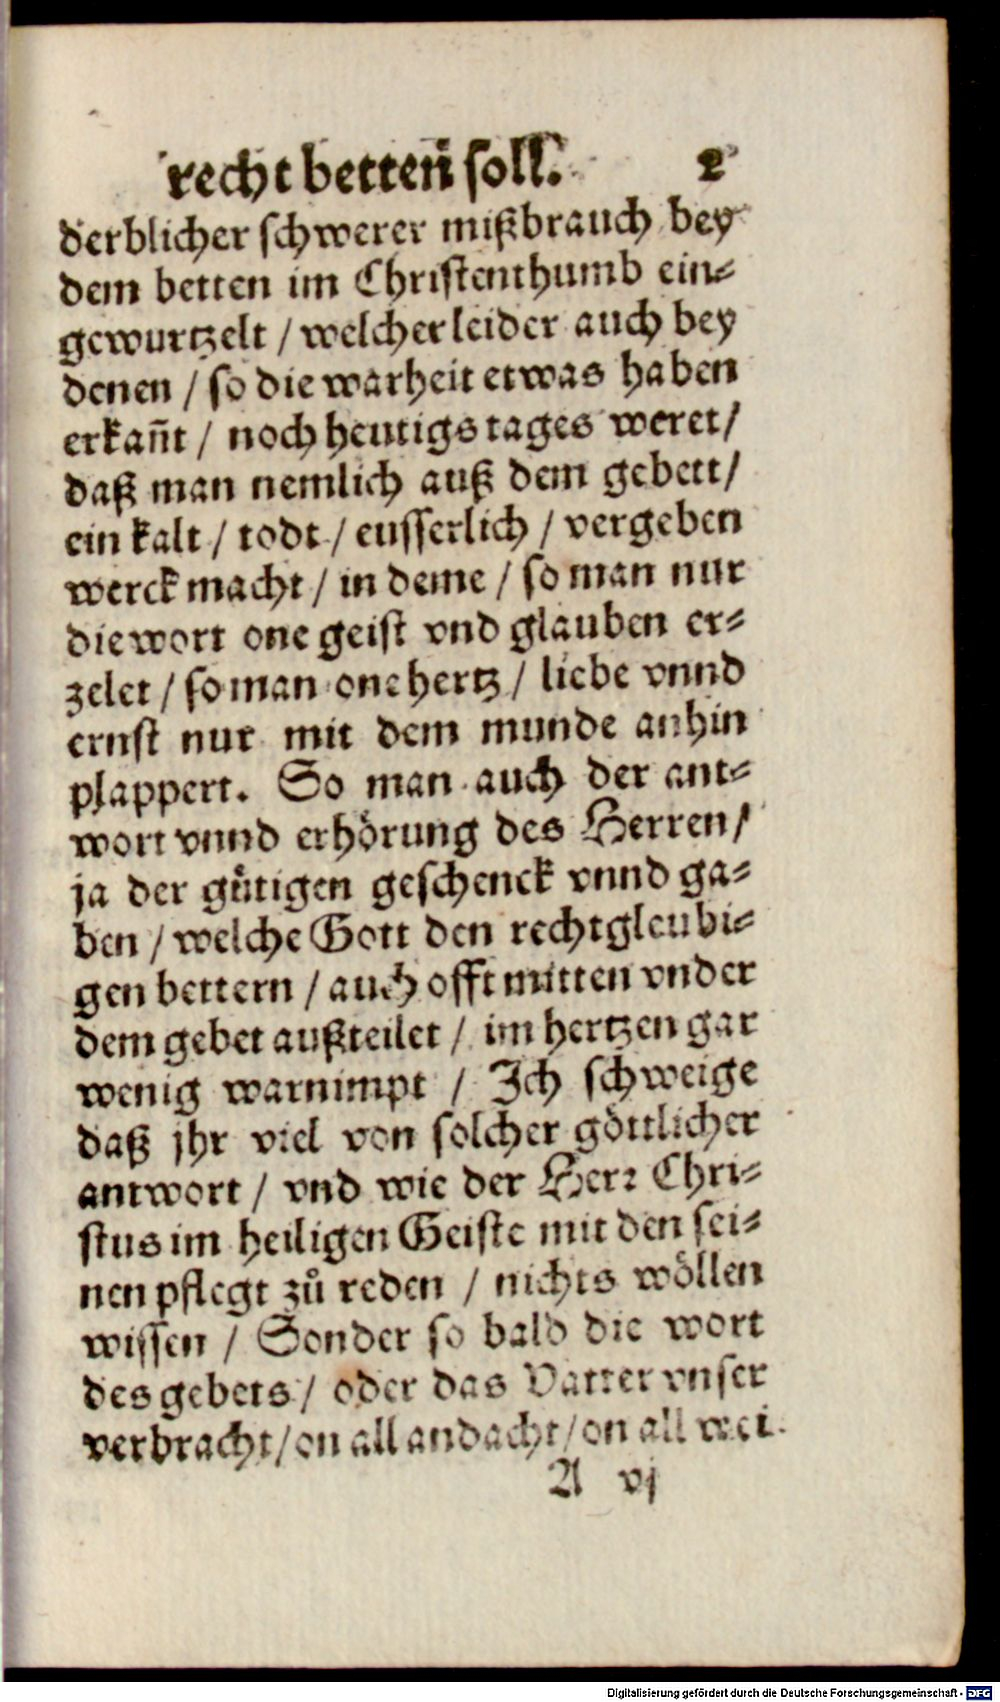 recht betten soll. 2
derblicher schwerer mißbrauch bey
dem betten im Christenthumb ein⸗
gewurtzelt / welcher leider auch bey
denen / so die warheit etwas haben
erkañt / noch heutigs tages weret /
daß man nemlich auß dem gebett /
ein kalt / todt / eusserlich / vergeben
werck macht / in deme / so man nur
die wort one geist vnd glauben er⸗
zelet / so man one hertz / liebe vnnd
ernst nur mit dem munde anhin
plappert. So man auch der ant⸗
wort vnnd erhörung des Herren /
ja der gütigen geschenck vnnd ga⸗
ben / welche Gott den rechtgleubi⸗
gen bettern / auch offt mitten vnder
dem gebet außteilet / im hertzen gar
wenig warnimpt / Ich schweige
daß jhr viel von solcher göttlicher
antwort / vnd wie der Herr Chri⸗
stus im heiligen Geiste mit den sei⸗
nen pflegt zů reden / nichts wöllen
wissen / Sonder so bald die wort
des gebets / oder das Vatter vnser
verbracht / on all andacht / on all wei⸗
A vj
Digitalisierung gefördert durch die Deutsche Forschungsgemeinschaft - DFG